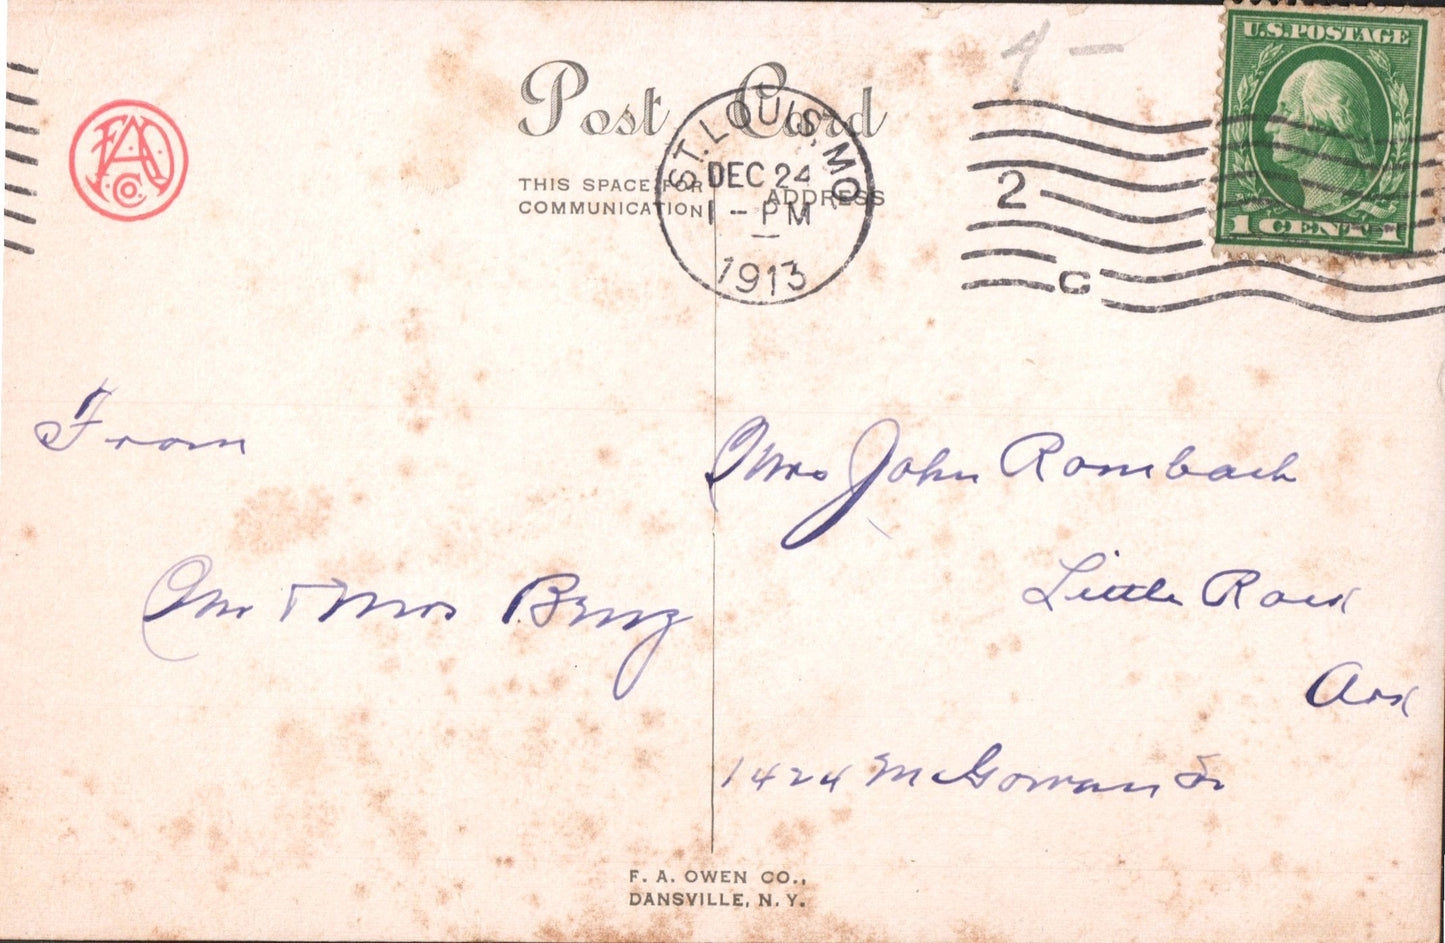 4 -
U.S. POSTAGE
1 CENT 1
FAO
Co.
Post Card
THIS SPACE FOR
COMMUNICATION
ADDRESS
ST. LOUIS, MO
DEC 24
1 - PM
1913
2
C
From
Mr & Mrs Benz
Mrs John Rombach
Little Rock
Ark
1424 McGowan St
F. A. OWEN CO.,
DANSVILLE, N. Y.